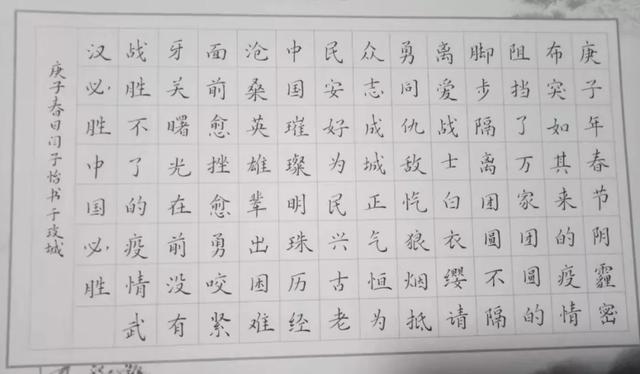 庚子年春节阴霾密
布突如其来的疫情
阻挡了万家团圆的
脚步隔离团圆不隔
离爱战士白衣缨请
勇同仇敌忾狼烟抵
众志成城正气恒为
民安好为民兴古老
中国璀璨明珠历经
沧桑英雄辈出困难
面前愈挫愈勇咬紧
牙关曙光在前没有
战胜不了的疫情武
汉必胜中国必胜
庚子春日闫子怡书于玫城